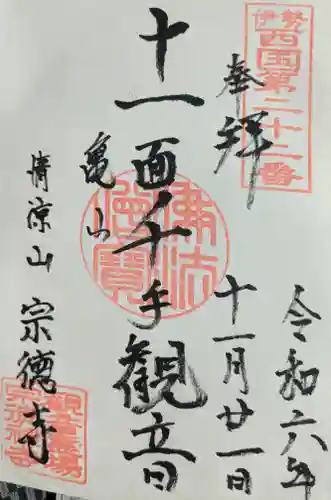 伊勢
西国第二十二番
奉拝
令和六年
十一月廿一日
十一面千手観音
亀山
佛法僧寳
清涼山
宗徳寺